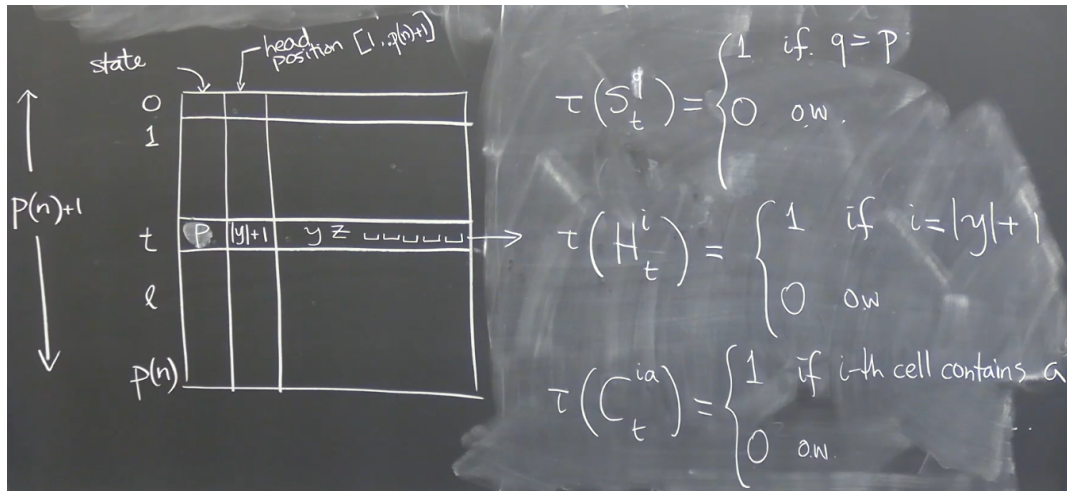 state
head
position [1..p(n)+1]
0
1
p(n)+1
t p |y|+1 y z ␣␣␣␣␣
l
p(n)
τ(S_t^q) = { 1 if q = p
0 o.w.
τ(H_t^i) = { 1 if i = |y|+1
0 o.w
τ(C_t^{ia}) = { 1 if i-th cell contains a
0 o.w.